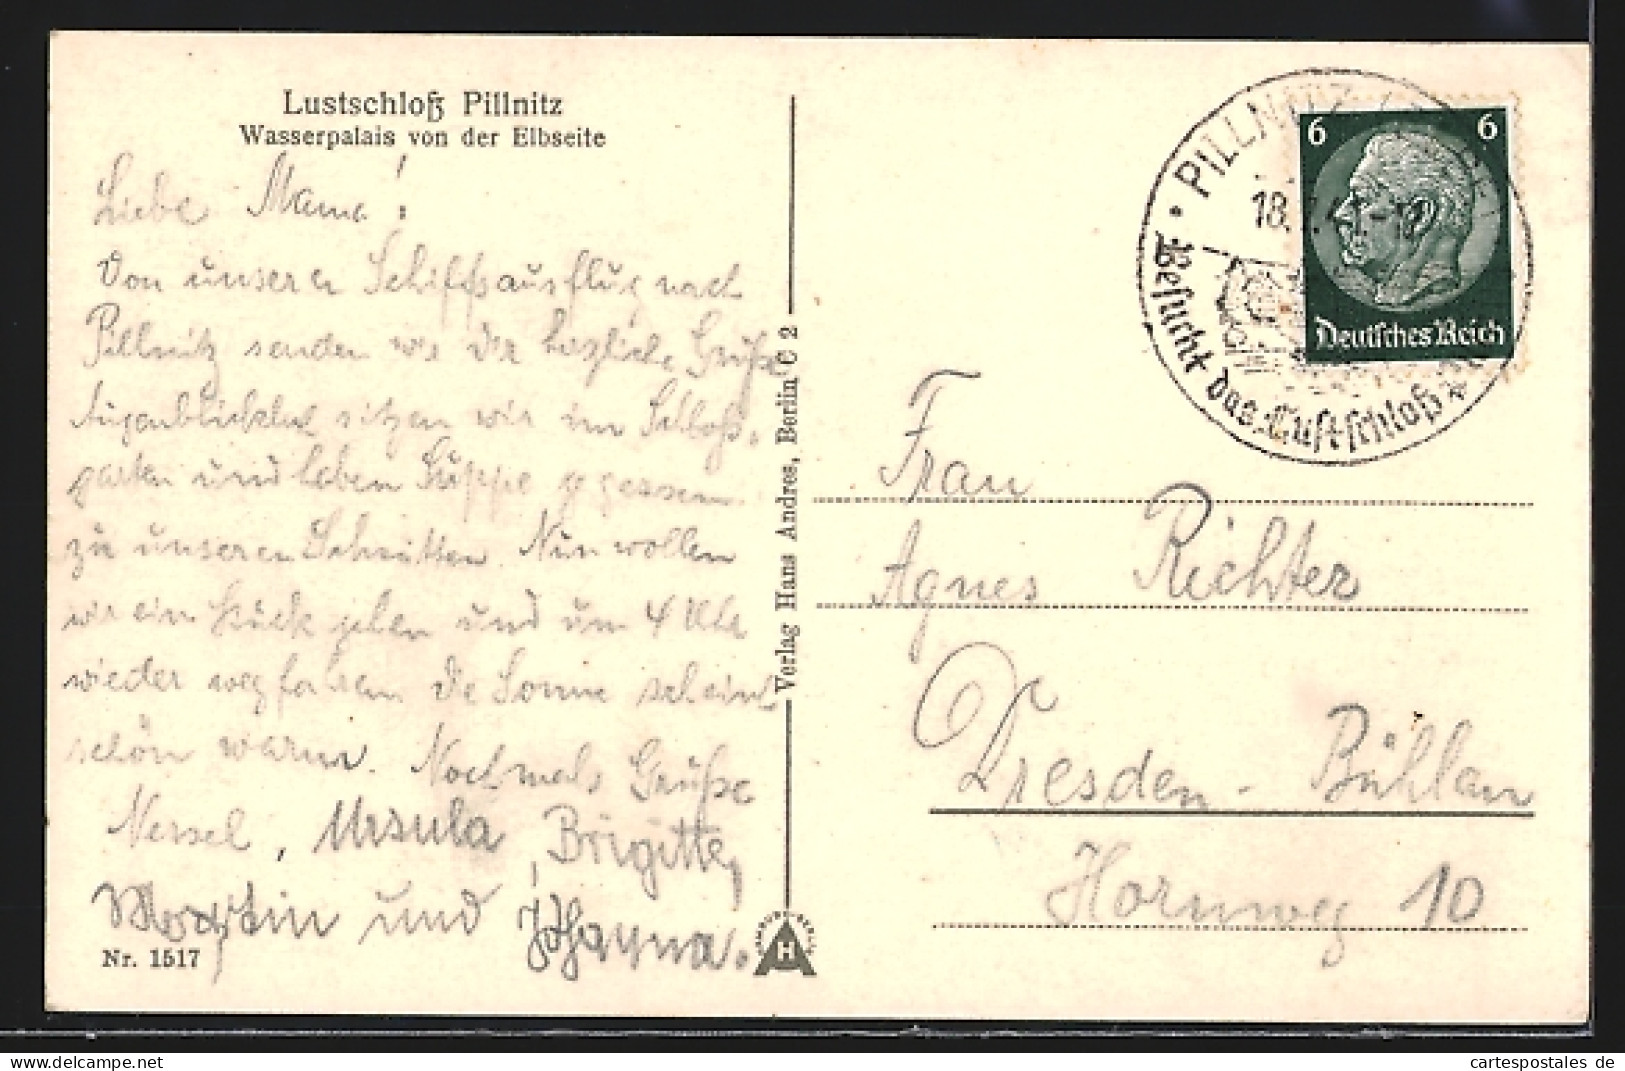 Lustschloß Pillnitz
Wasserpalais von der Elbseite
Liebe Mama!
Von unserem Schiffsausflug nach
Pillnitz senden wir Dir herzliche Grüße
Augenblicklich sitzen wir im Schloß-
garten und haben Suppe gegessen
zu unseren Schnitten. Nun wollen
wir ein Stück gehen und um 4 Uhr
wieder wegfahren. Die Sonne scheint
schön warm. Nochmals Grüße
Ursula, Brigitte,
Martin und Johanna.
Nr. 1517
Verlag Hans Andres, Berlin C 2
H
PILLNITZ
18.
Besucht das Lustschloß
6 6
Deutsches Reich
Frau
Agnes Richter
Dresden-Bühlau
Hornweg 10
cartespostales de